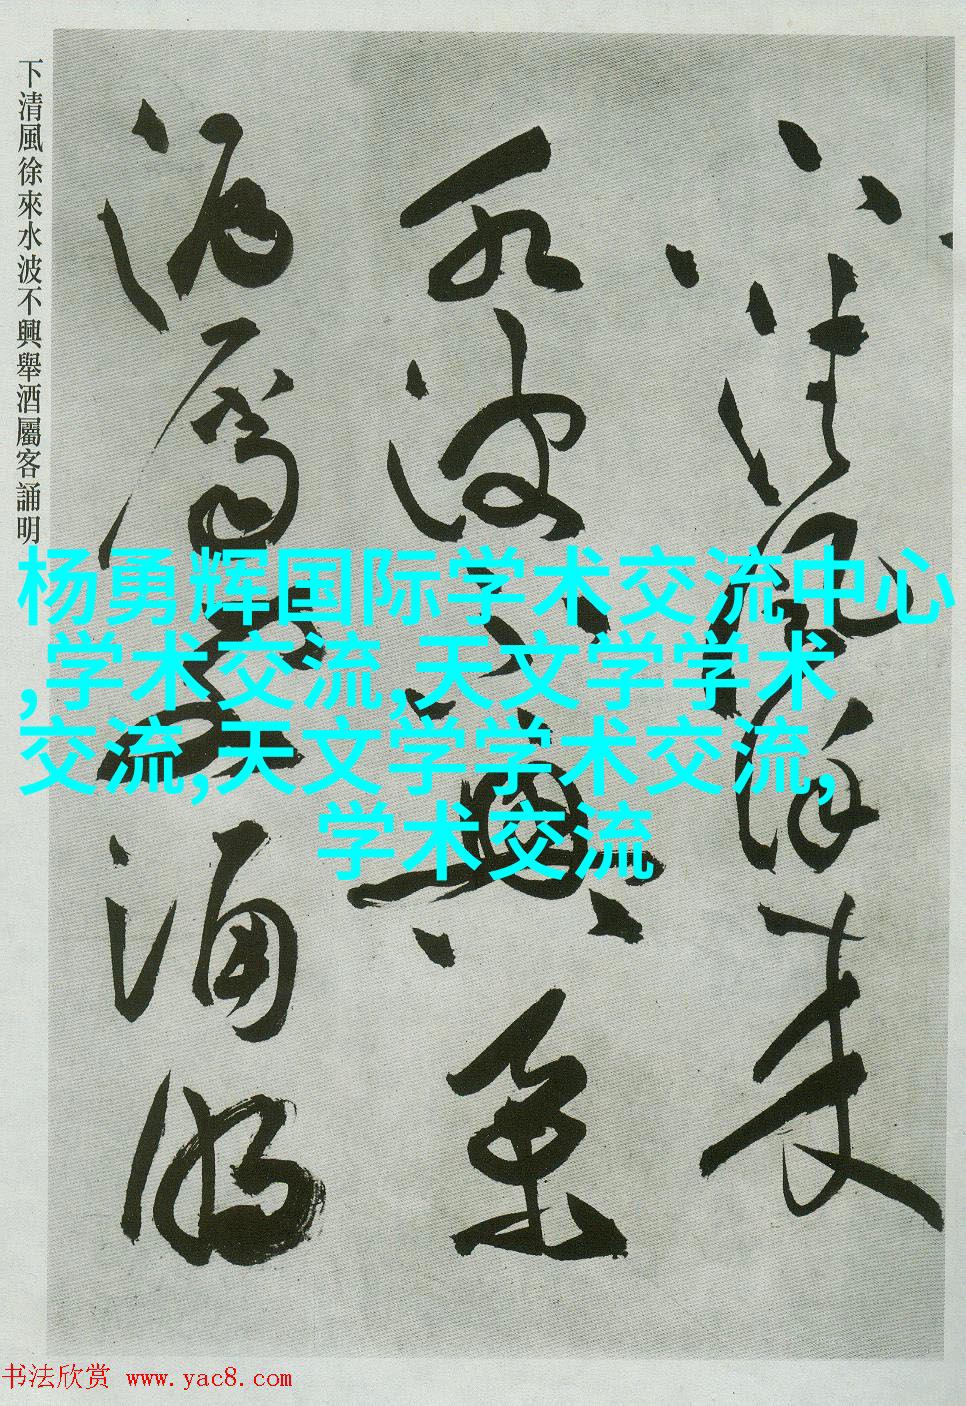 下清風徐來水波不興舉酒屬客誦明
下
清風徐來
水波不興舉
酒屬客誦明
杨勇辉国际学术交流中心
,学术交流,天文学学术
交流,天文学学术交流,
学术交流
书法欣赏 www.yac8.com